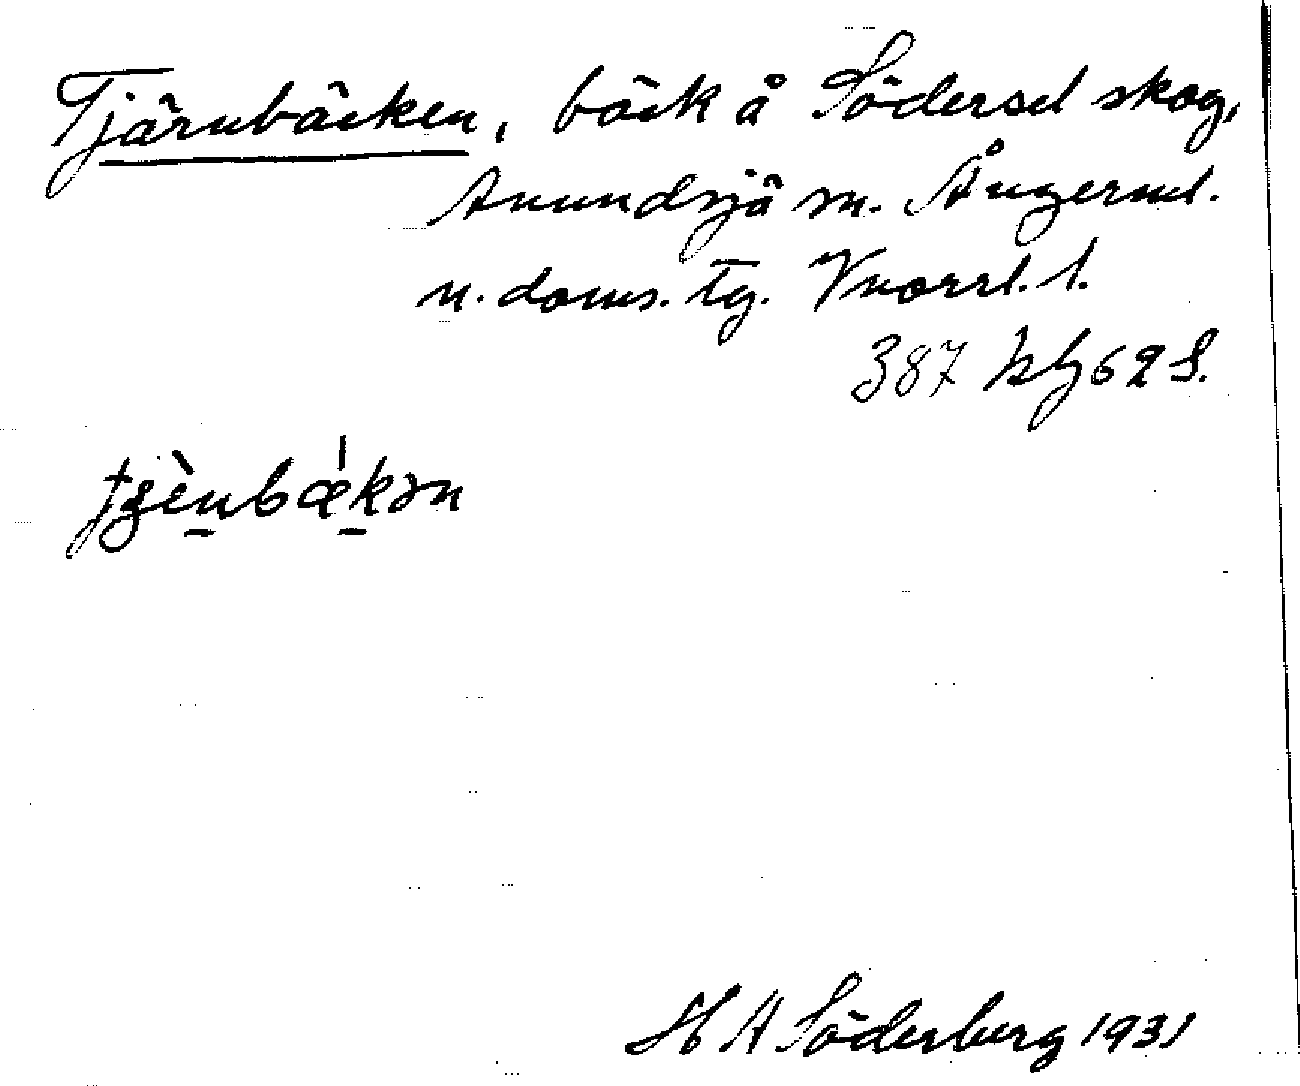 Tjärnbäcken, bäck å Södersel skog,
Anundsjö sn. Ångerml.
n. doms. tg. Vnorrl. l.
387 kbj 62 S.
H A Söderberg 1931